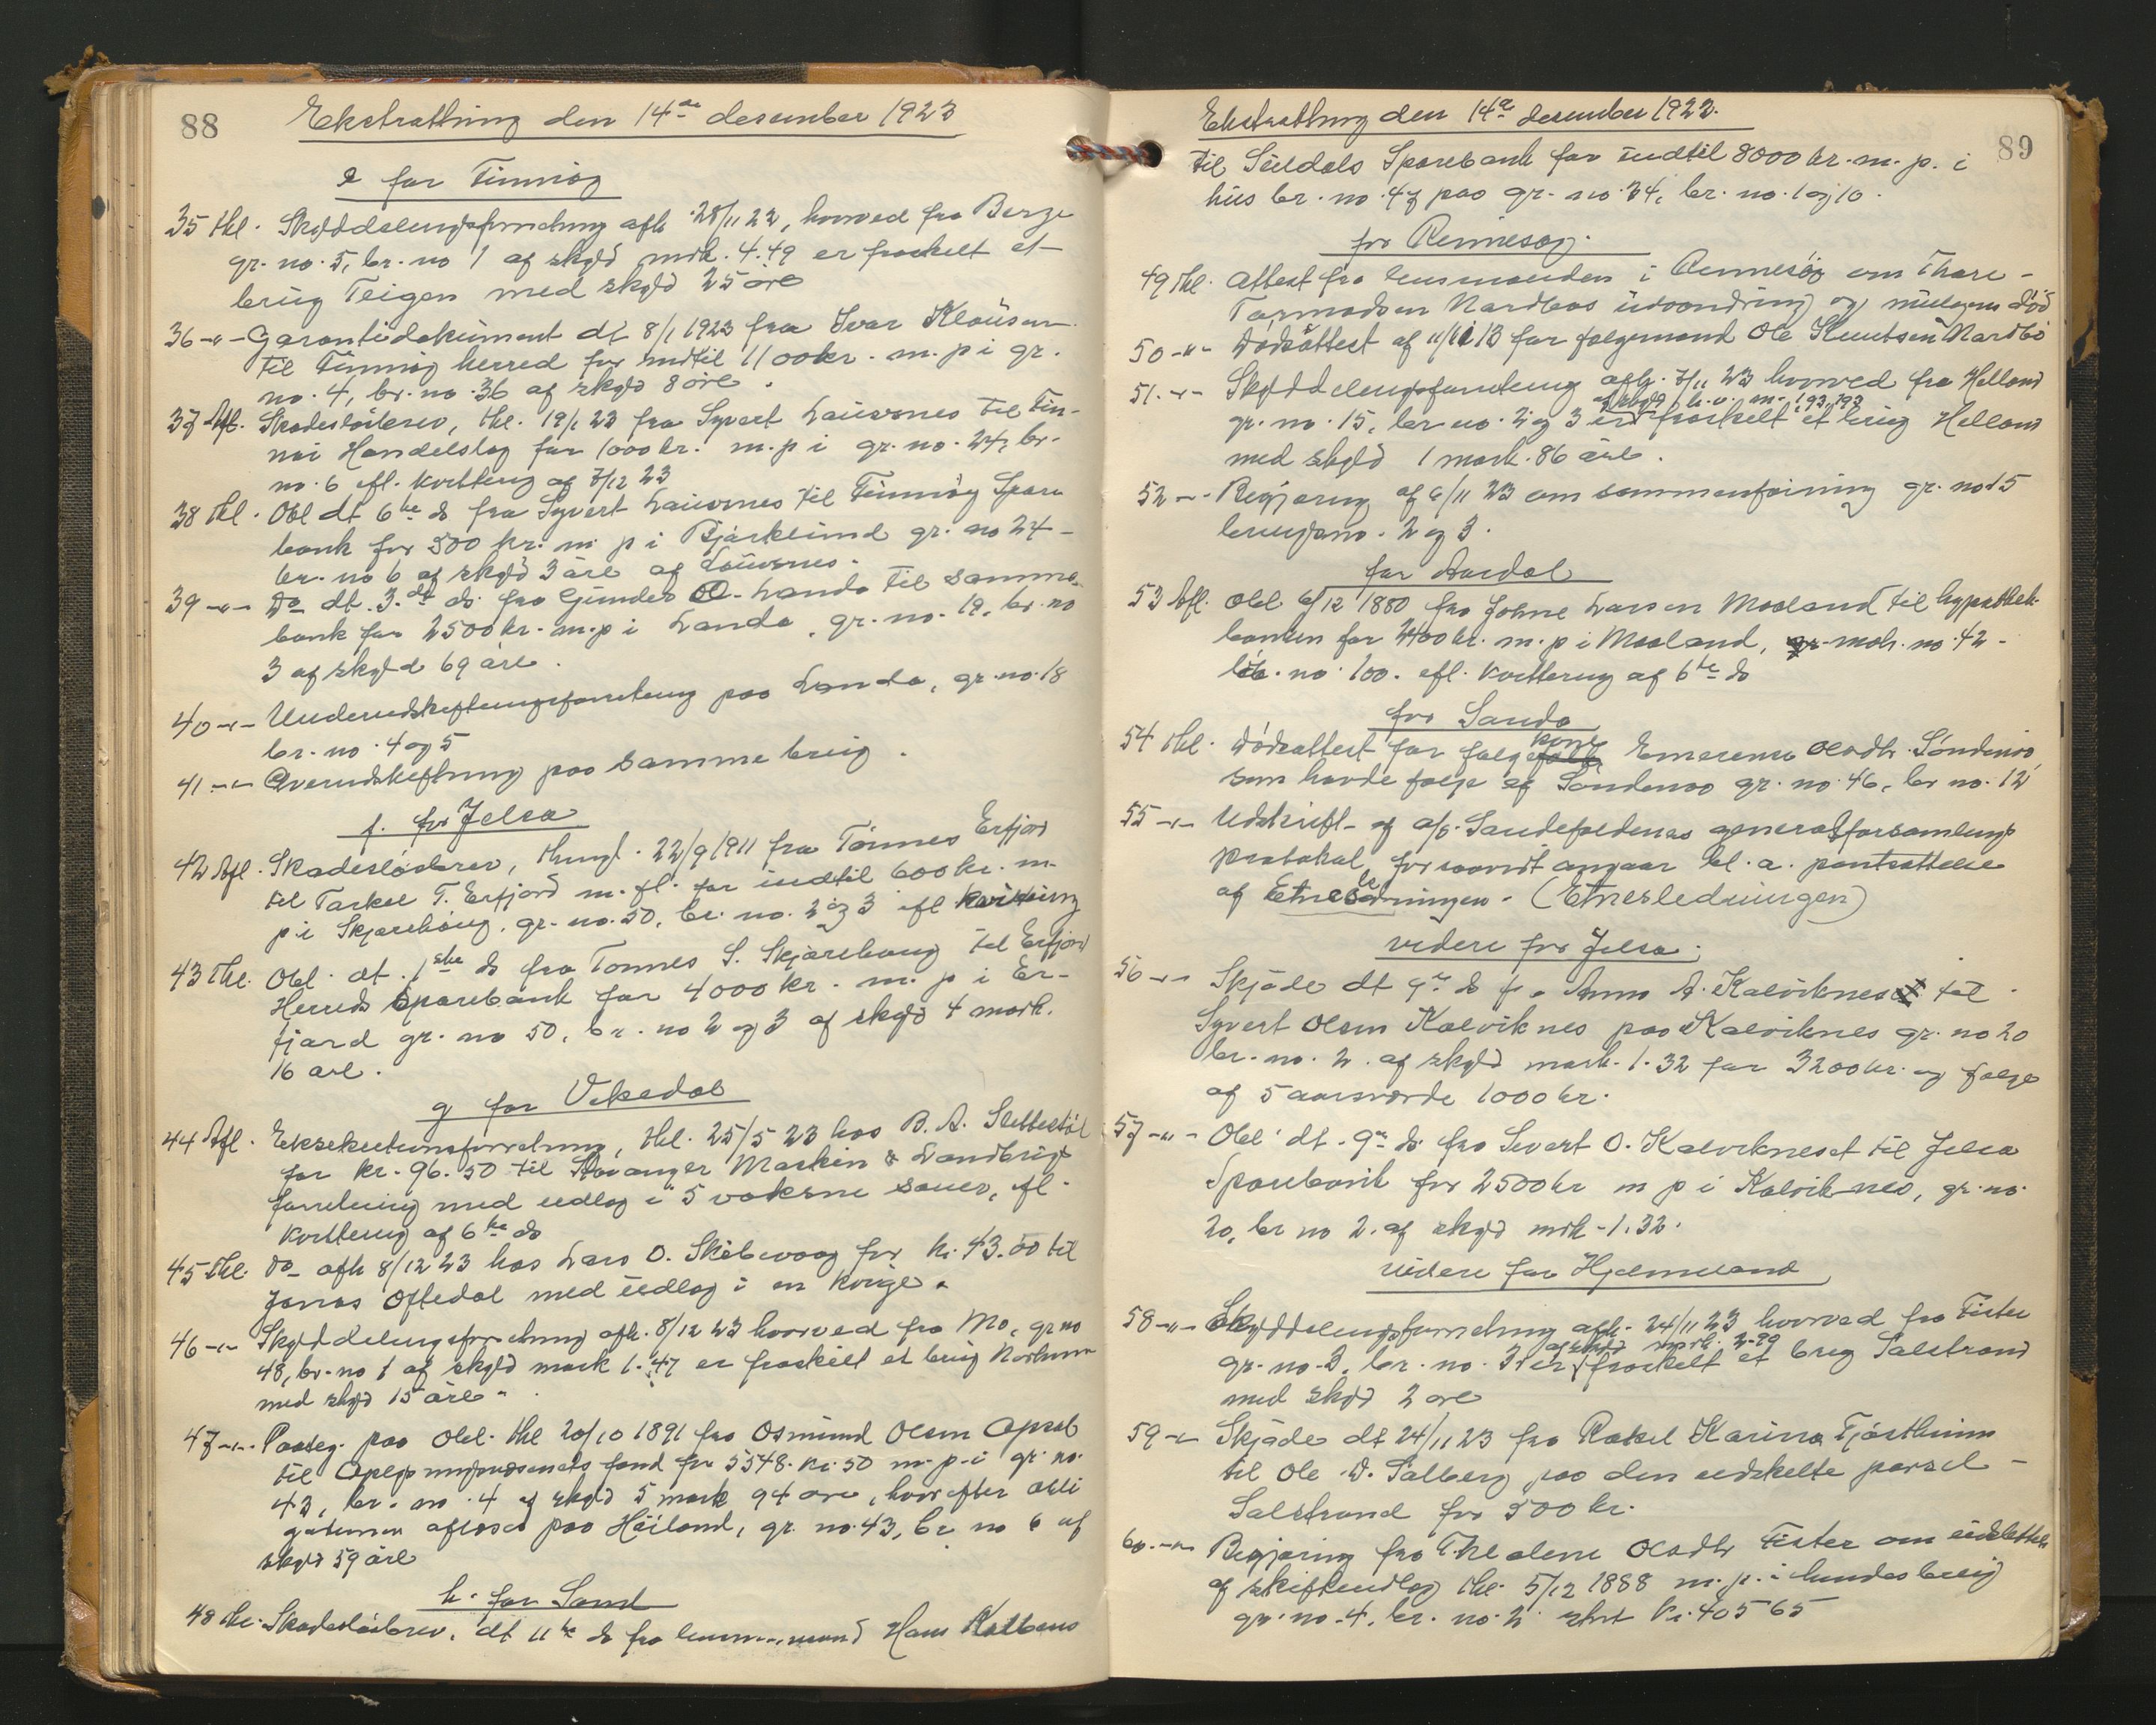 88
Ekstratthing den 14de desember 1923
e for Finnøy
35 thl. Skylddelingsforretning afh. 28/11 23, hvorved fra Berge
gr. no. 5, br. no 1 af skyld mrk. 4.49 er fraskilt et
brug Teigen med skyld 25 øre
36 -"- Garantidokument dt 8/1 1923 fra Ivar Klausen
til Finnøy herred for indtil 1100 kr. m. p i gr.
no. 4, br. no. 36 af skyld 8 øre.
37 Afl. Skadesløsbrev, thl. 19/1 23 fra Syvert Lauvsnes til Fin-
nøi Handelslag for 1000 kr. m. p i gr. no. 24, br.
no. 6 efl. kvittering af 7/12 23
38 thl. Obl dt 6te ds fra Syvert Lauvsnes til Finnøy Spare
bank for 500 kr. m. p i Bjørkelund gr. no 24 -
br. no 6 af skyld 3 øre af Lauvsnes.
39 -"- Do dt. 3.de ds. fra Gunder O. Landa til samme
bank for 2500 kr. m. p i Landa, gr. no. 18, br. no
3 af skyld 69 øre.
40 -"- Underudskiftningsforretning paa Landa, gr. no. 18
br. no. 4 og 5
41 -"- Overudskiftning paa samme brug.
f. for Jelsa
42 Afl. Skadesløsbrev, thingl. 22/9 1911 fra Tønnes Erfjord
til Tarkel T. Erfjord m. fl. for indtil 600 kr. m.
p. i Skjærehaug, gr. no. 50, br. no. 2 og 3 efl kvittering
43 thl. Obl. dt. 1ste ds fra Tønnes S. Skjærehaug til Erfjord
Herreds Sparebank for 4000 kr. m. p i Er-
fjord gr. no 50, br. no 2 og 3 af skyld 4 mark.
16 øre.
g for Vikedal
44 Afl. Eksekutionsforretning, thl. 25/5 23 hos B. A. Slettestøl
for kr. 96.50 til Stavanger Maskin & Landbrugs
forretning med udlæg i 5 voksne sauer, efl.
kvittering af 6te ds
45 thl. Do afh 8/12 23 hos Lars O. Skibevaag for kr. 43.00 til
Jonas Oftedal med udlæg i en kvige.
46 -"- Skylddelingsforretning afh. 8/12 23 hvorved fra Mo, gr no
48, br. no 1 af skyld mark 1.47 er fraskilt et brug
med skyld 15 øre.
47 -"- Paateg. paa Obl. thl 20/10 1891 fra Osmund Olsen Opsal
til fond for 5548. kr. 50 m. p. i gr. no.
43, br. no. 4 af skyld 5 mark 94 øre, hvorefter obli
gationen afløses paa Høiland, gr. no. 43, br. no 6 af
skyld 59 øre
h. for Sand
48 thl. Skadesløsbrev, dt 11te ds fra lensmand Hans
89
Ekstratthing den 14de desember 1923.
til Suldals Sparebank for indtil 8000 kr. m. p. i
hus br. no. 47 paa gr. no. 34, br. no. 1 og 10.
for Rennesøy.
49 thl. Attest fra lensmanden i Rennesøy om Thore -
Tormodsen Nordbøs udvandring og muligens død
50 -"- Dødsattest af 11/11 13 for følgemand Ole Knutsen Nordbø
51 -"- Skylddelingsforretning afh. 7/11 23 hvorved fra Helland
af skyld h.v. m. 1.93, 1.93
gr. no. 15, br. no. 2 og 3 er fraskilt et brug Helland
med skyld 1 mark. 86 øre.
52 -"- Begjæring af 6/11 23 om sammenføining gr. no 15
bruksno. 2 og 3.
for Aardal
53 Afl. Obl 6/12 1880 fra Johne Larsen Mæland til hypothek-
banken for 2400 kr. m. p i Mæland, matr. no. 42 -
løb. no. 100. efl. kvittering af 6te ds
for Sauda
54 thl. Dødsattest for følgekone Emerense Olsdtr. Søndenaa
som havde følge af Søndenaa gr. no 46, br no. 12
55 -"- Udskrift af a/s. Saudefaldenes generalforsamlings
protokol, forsaavidt angaar bl. a. pantsættelse
af Etneledningen. (Etnesledningen)
videre for Jelsa.
56 -"- Skjøde dt 9de ds fra Anna A. Kalviknes til
Syvert Olsen Kalviknes paa Kalviknes gr. no 20
br. no. 2. af skyld mark. 1.32 for 3200 kr. og følge
af 5 aarsværde 1000 kr.
57 -"- Obl. dt. 9de ds. fra Sivert O. Kalvikneset til Jelsa
Sparebank for 2500 kr m p i Kalviknes, gr. no.
20, br no 2. af skyld mrk. 1.32.
videre for Hjelmeland
58 -"- Skylddelingsforretning afh. 24/11 23 hvorved fra Fister
af skyld mark. 2.99
gr. no. 3, br. no. 3 er fraskilt et brug Salstrand
med skyld 2 øre
59 -"- Skjøde dt 24/11 23 fra Rakel Karina Fjøstheim
til Ole D. Salberg paa den udskilte parsel -
Salstrand for 500 kr.
60 -"- Begjæring fra Thealene Olsdtr Fister om udslettelse
af skifteudlæg thl. 5/12 1888 m. p. i hendes brug
gr. no. 4, br. no. 2 stort kr. 405 65